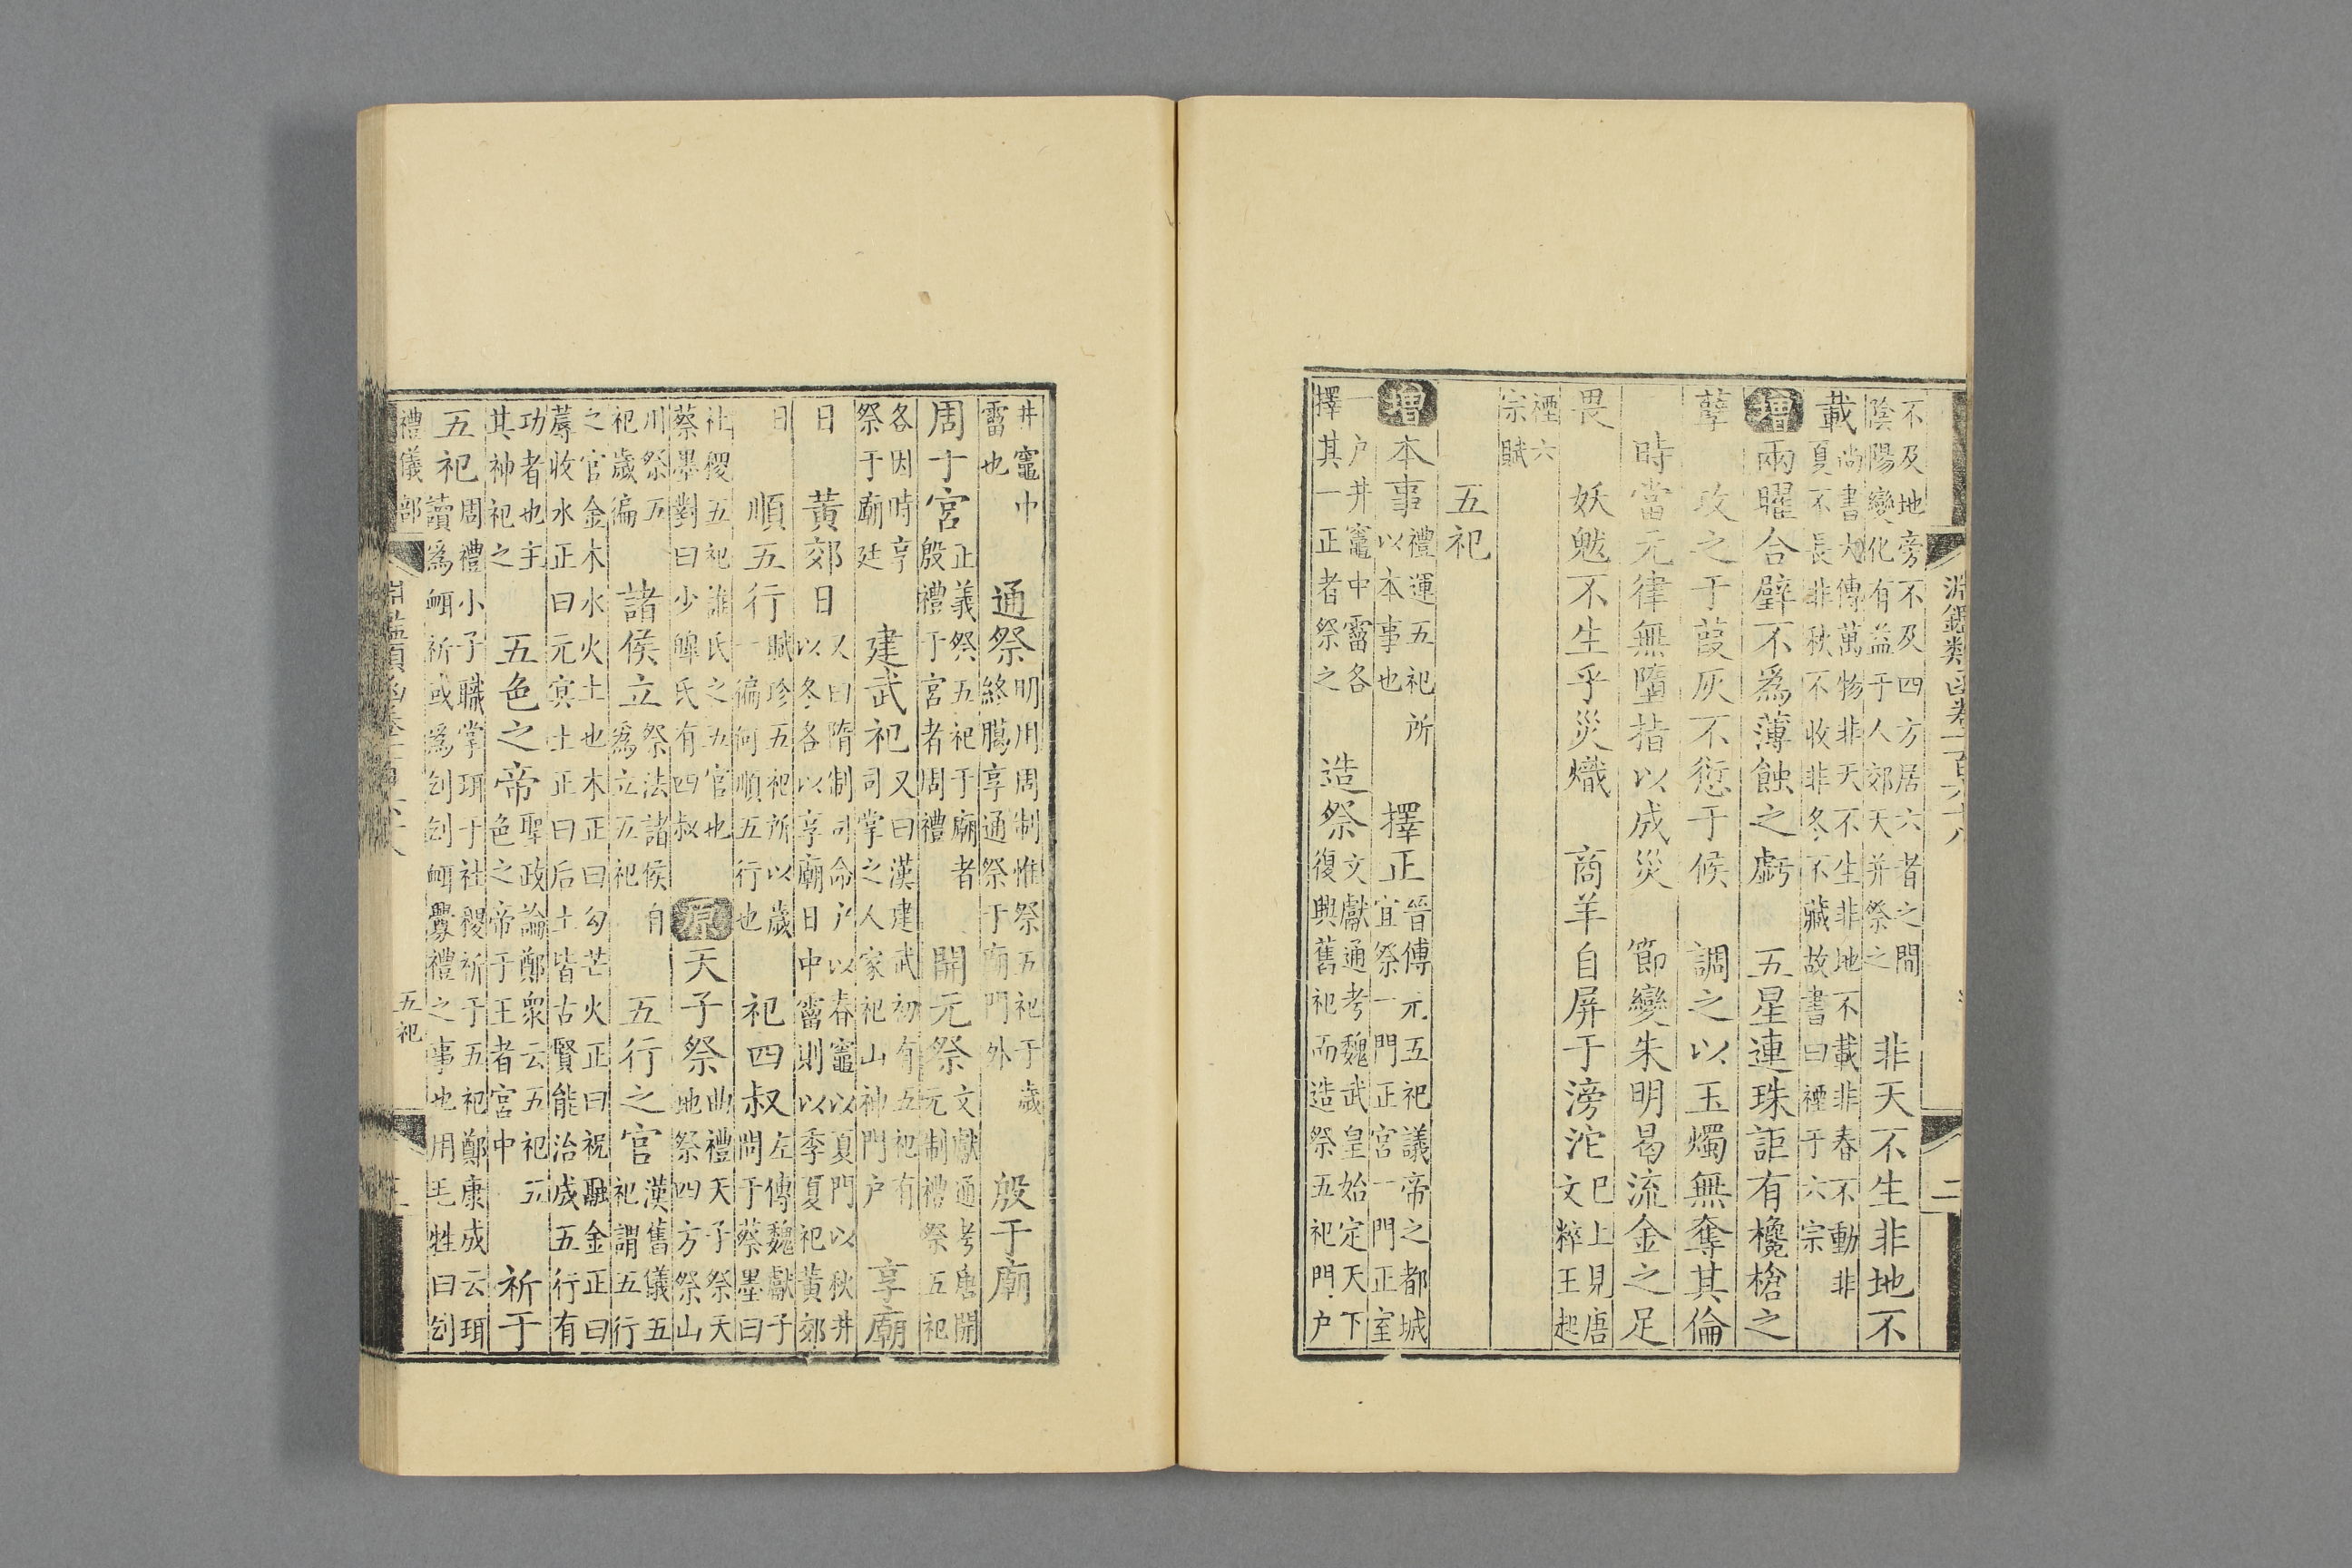 淵鑑類函卷一百六十八 二
不及地旁不及四方居六者之間陰陽變化有益于人郊天并祭之 非天不生非地不
載尚書大傳萬物非天不生非地不載非春不動非夏不長非秋不收非冬不藏故書曰禋于六宗
增兩曜合璧不爲薄蝕之虧 五星連珠詎有欃槍之
孽 攻之于葭灰不愆于候 調之以玉燭無奪其倫
時當元律無墮指以成災 節變朱明曷流金之足
畏 妖魃不生乎災熾 商羊自屏于滂沱巳上見唐文粹王起
禋六宗賦
五祀
增本事禮運五祀所以本事也 擇正晉傅元五祀議帝之都城宜祭一門正宮一門正室
一户井竈中霤各擇其一正者祭之 造祭文獻通考魏武皇始定天下復興舊祀而造祭五祀門户
井竈中霤也 通祭明用周制惟祭五祀于歲終臈享通祭于廟門外 殷于廟
周于宮正義祭五祀于廟者殷禮于宮者周禮 開元祭文獻通考唐開元制禮祭五祀
各因時享祭于廟廷 建武祀又曰漢建武初有五祀有司掌之人家祀山神門户 享廟
日 黃郊日又曰隋制司命户以春竈以夏門以秋井以冬各以享廟日中霤則以季夏祀黃郊
日 順五行賦珍五祀所以歲一徧何順五行也 祀四叔左傳魏獻子問于蔡墨曰
社稷五祀誰氏之五官也蔡墨對曰少皞氏有四叔 原天子祭曲禮天子祭天地祭四方祭山
川祭五祀歲徧 諸侯立祭法諸侯自爲立五祀 五行之官漢舊儀五祀謂五行
之官金木水火土也木正曰勾芒火正曰祝融金正曰蓐收水正曰元冥土正曰后土皆古賢能治成五行有
功者也主其神祀之 五色之帝聖政論鄭衆云五祀五色之帝于王者宮中 祈于
五祀周禮小子職掌珥于社稷祈于五祀鄭康成云珥讀爲衈祈或爲刉刉衈釁禮之事也用毛牲曰刉
禮儀部 淵鑑類函卷一百六十八 五祀 三